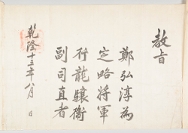 敎旨
鄭弘淳為
定略將軍
行龍驤衛
副司直者
乾隆十三年八月　日